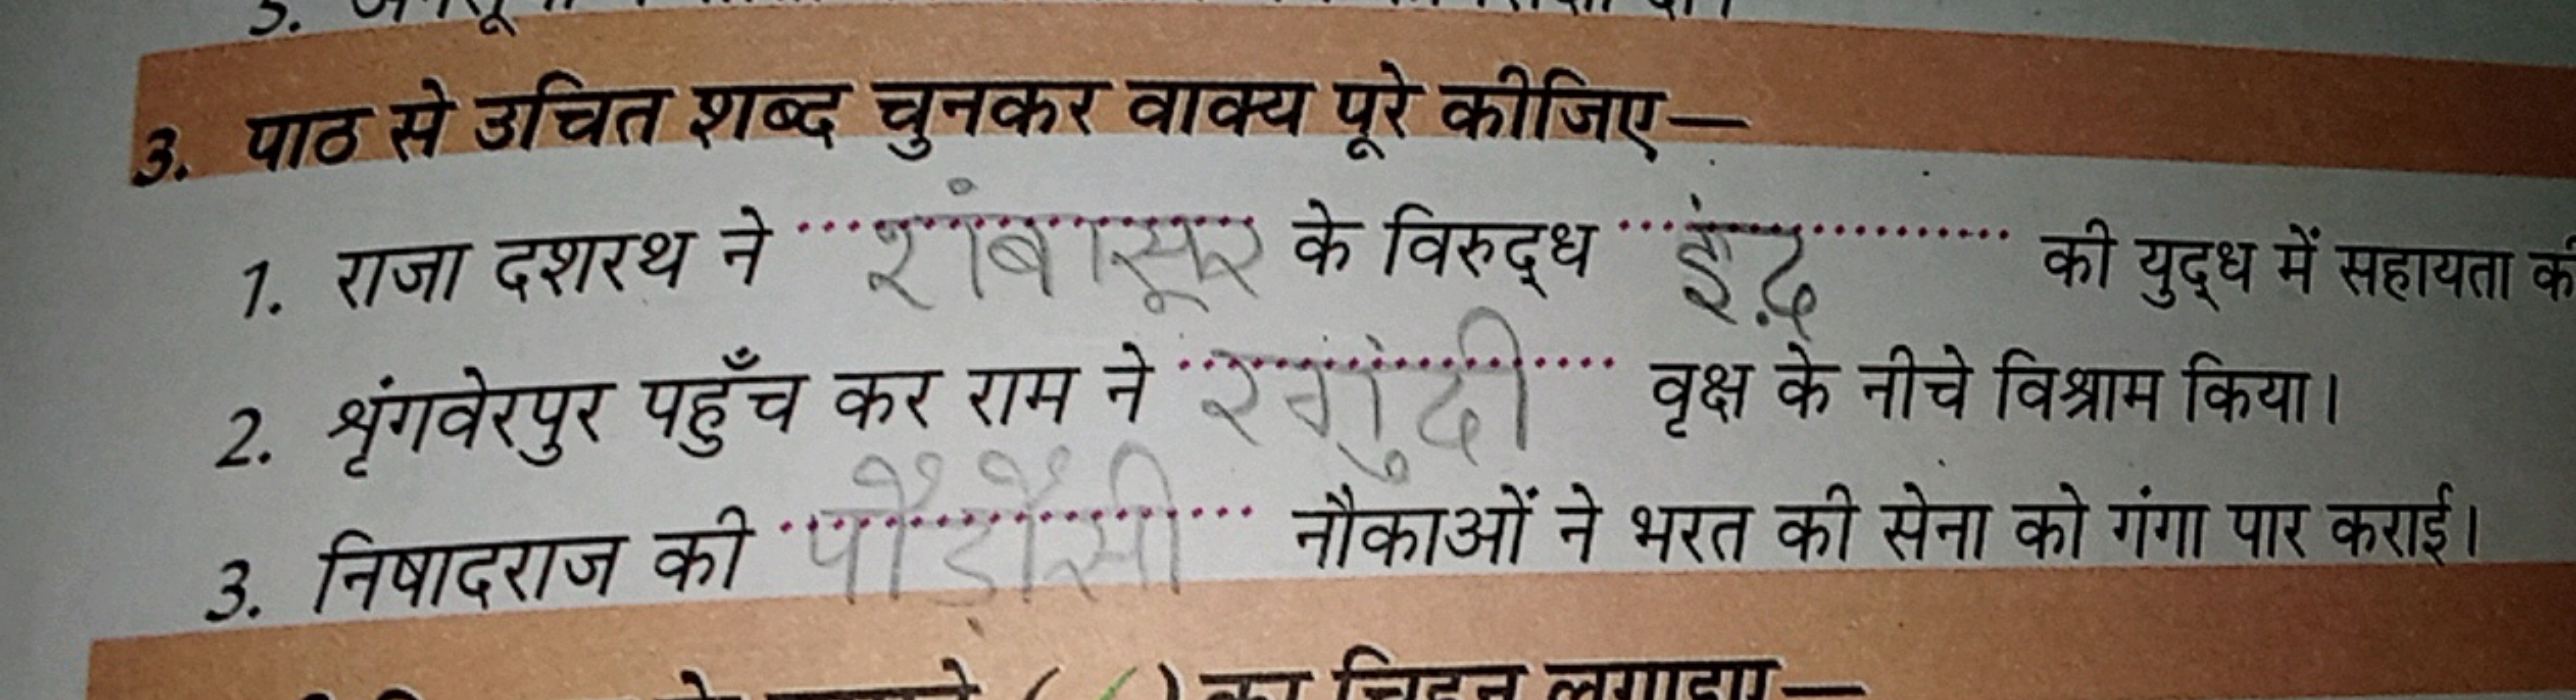 3. पाठ से उचित शब्द चुनकर वाक्य पूरे कीजिए—
1. राजा दशरथ ने शंबासूर के विरुद्ध इंद्र की युद्ध में सहायता की
2. शृंगवेरपुर पहुँच कर राम ने वृक्ष के नीचे विश्राम किया।
3. निषादराज की नौकाओं ने भरत की सेना को गंगा पार कराई।
का चिह्न लगाइए—